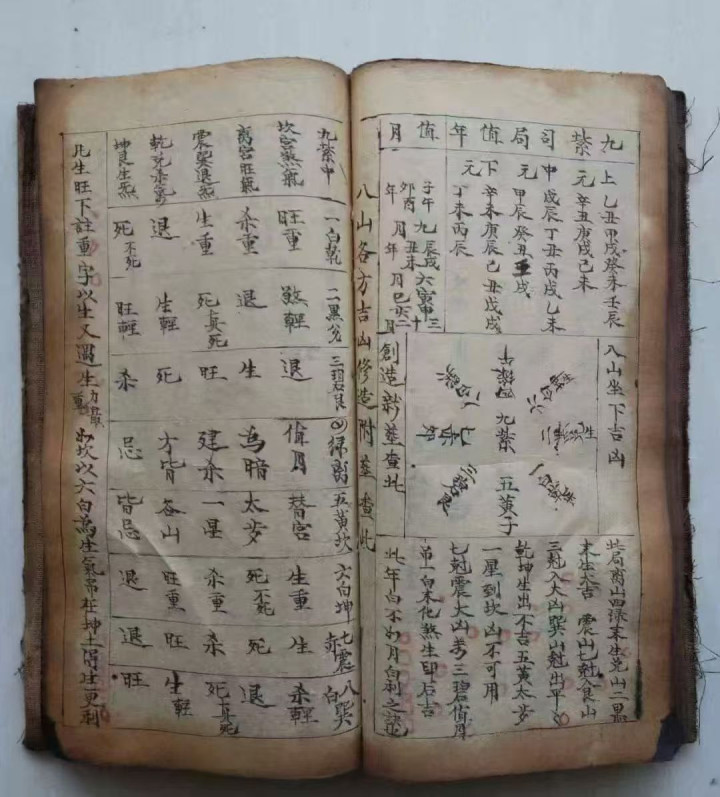 九紫司局值年值月
上元 乙丑甲戌癸未壬辰
辛丑庚戌己未
中元 戊辰丁丑丙戌乙未
甲辰癸丑壬戌
下元 辛未庚辰己丑戊戌
丁未丙辰
子午卯酉年九月
辰戌丑未年六月
寅申巳亥年三月十二月
八山坐下吉凶
九紫
五黃子
三碧艮
此局离山四渌木生兑山二黑
木生大吉 震山七赳入艮山
三赳入大凶巽山赳出平
乾坤生出不吉五黃太岁
一星到坎凶不可用
七赳震大凶芳三碧值月
弟一白木化煞生印后吉
此年白不如月白利之訣
創造新塟查此
八山各方吉凶修造附塟查此
九紫中 一白乾 二黑兌 三碧艮 四綠离 五黃坎 六白坤 七赤震 八白巽
坎宮煞氣 旺重 煞輕 退 值月 替宮 生重 生 杀輕
离宮旺氣 杀重 退 生 為暗 太岁 死不死 死 退
震巽退炁 生重 死真死 旺 建杀 一星 杀重 杀 死真死
乾兌杀氣 退 生輕 死 方皆 各山 旺重 旺 生輕
坤艮生炁 死不死 旺輕 杀 忌 皆忌 退 退 旺
凡生旺下註重字以生又遇生方最重如坎以六白為生氣吊在坤土得生更利